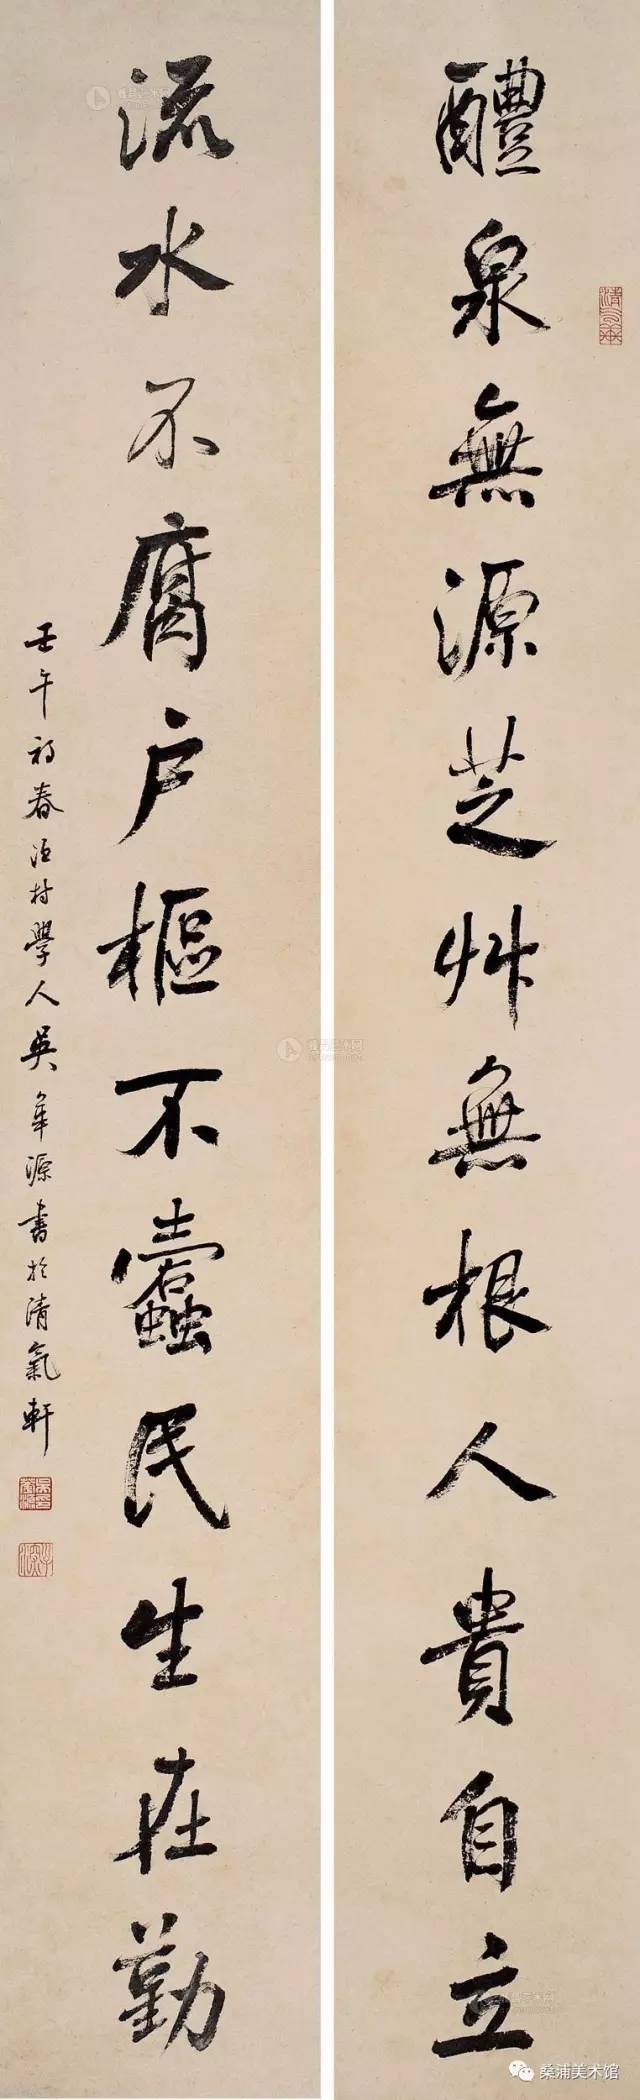 醴泉無源芝艸無根人貴自立
流水不腐户樞不蠹民生在勤
壬午初春村學人吳華源書於清氣軒
桑浦美术馆